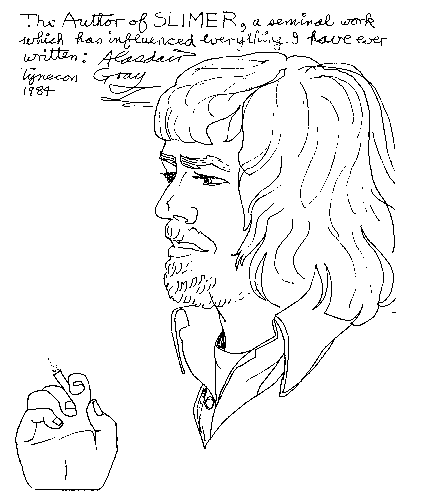 The Author of SLIMER, a seminal work
which has influenced everything I have ever
written: Alasdair
Tynecon Gray
1984